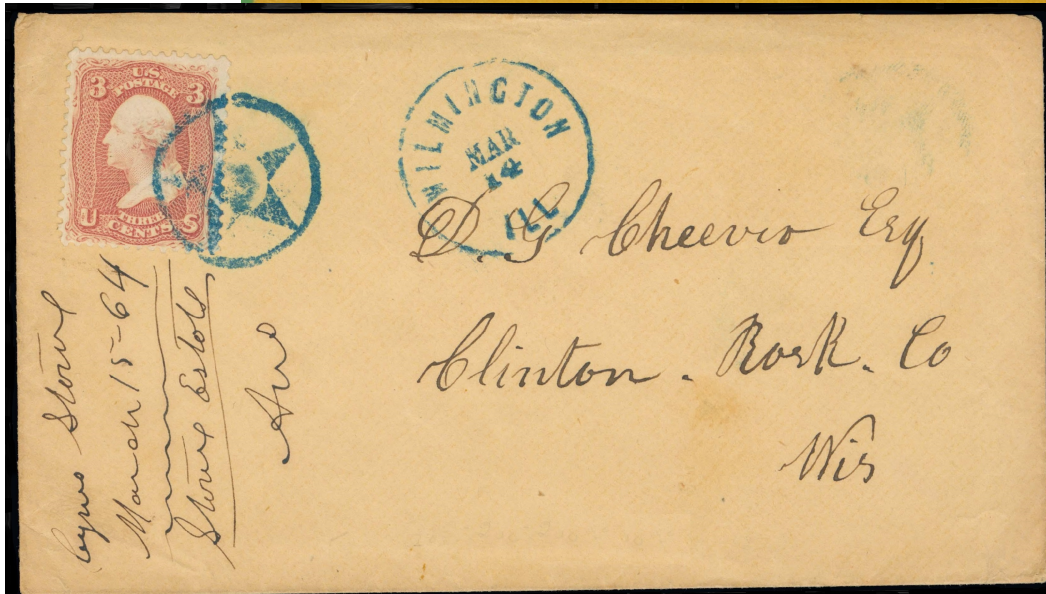 U.S.
POSTAGE
3 3
THREE
CENTS
U S
WILMINGTON
MAR
14
ILL
D. G Cheever Esq
Clinton. Rock. Co
Wis
Cyrus Stowe
March 15-64
Stowe Estate